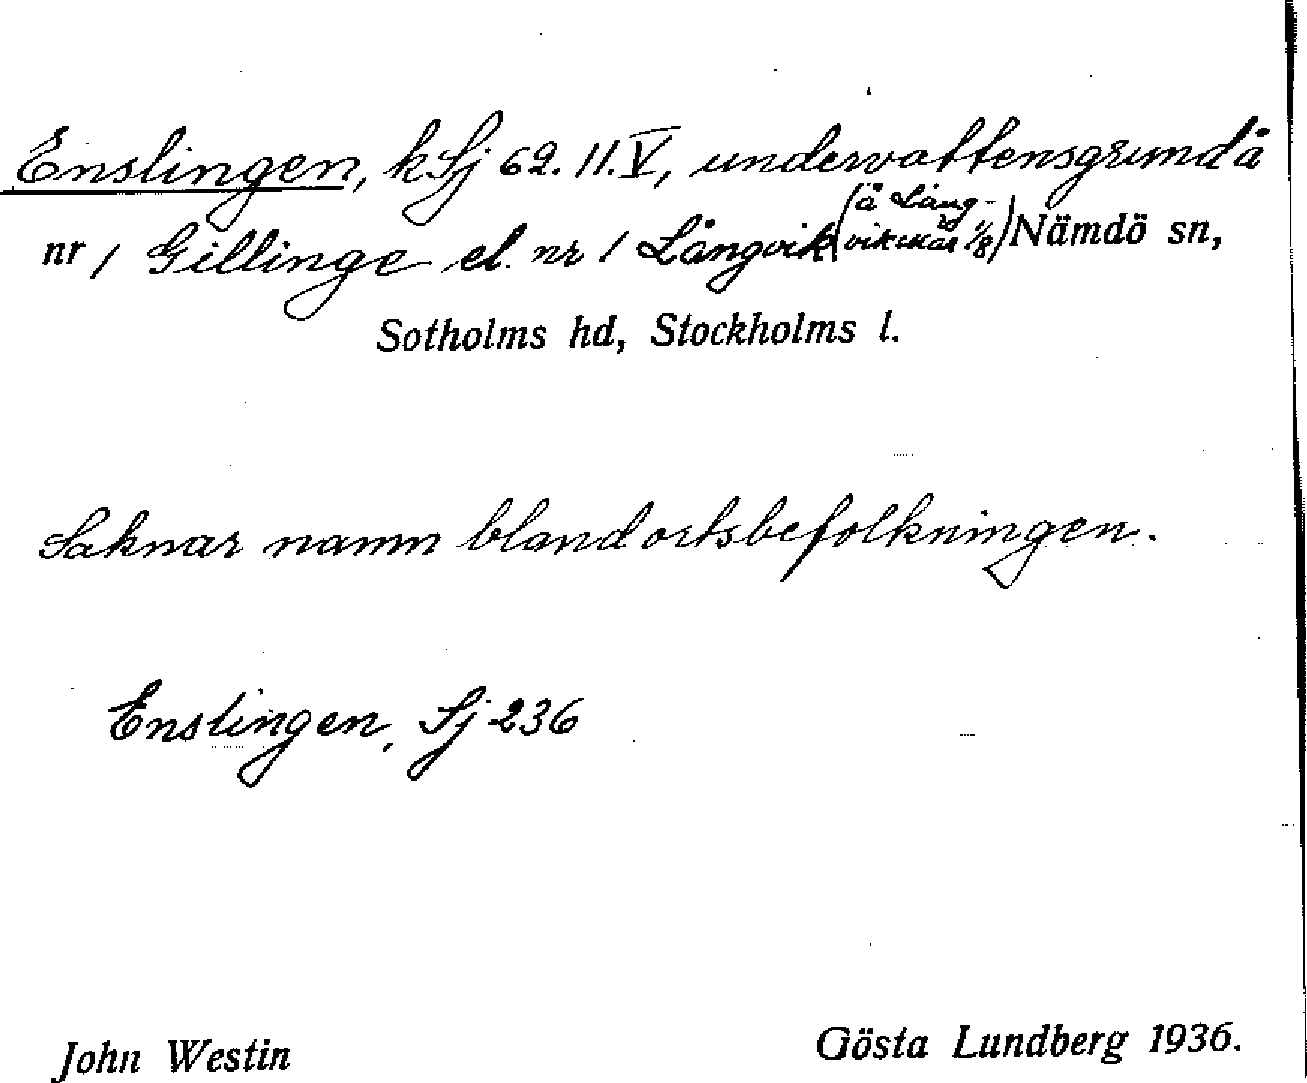 Enslingen, k Sj 62. 11. V, undervattensgrund å
nr 1 Gillinge el. nr 1 Långvik (å Lång-
vikskär 1/8) Nämdö sn,
Sotholms hd, Stockholms l.
Saknar namn bland ortsbefolkningen.
Enslingen, Sj 236
John Westin
Gösta Lundberg 1936.